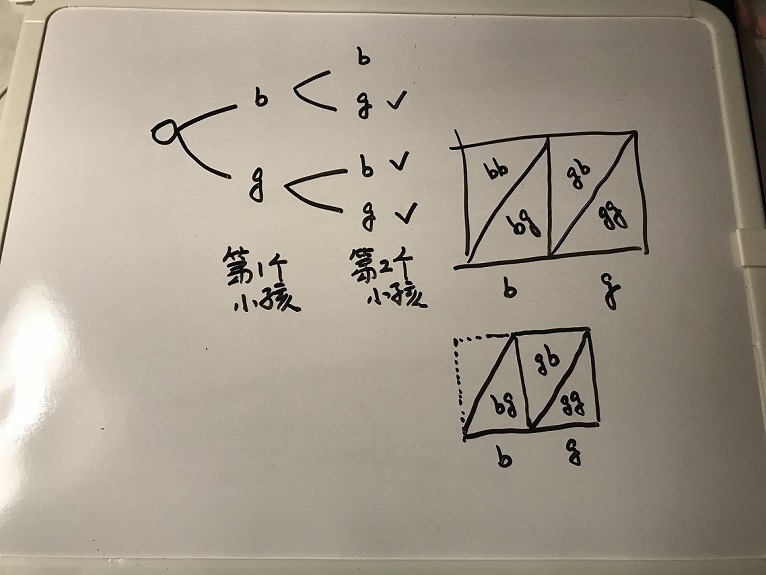 b
b
g ✓
g
b ✓
g ✓
第1个
小孩
第2个
小孩
bb
bg
gb
gg
b
g
bg
gb
gg
b
g